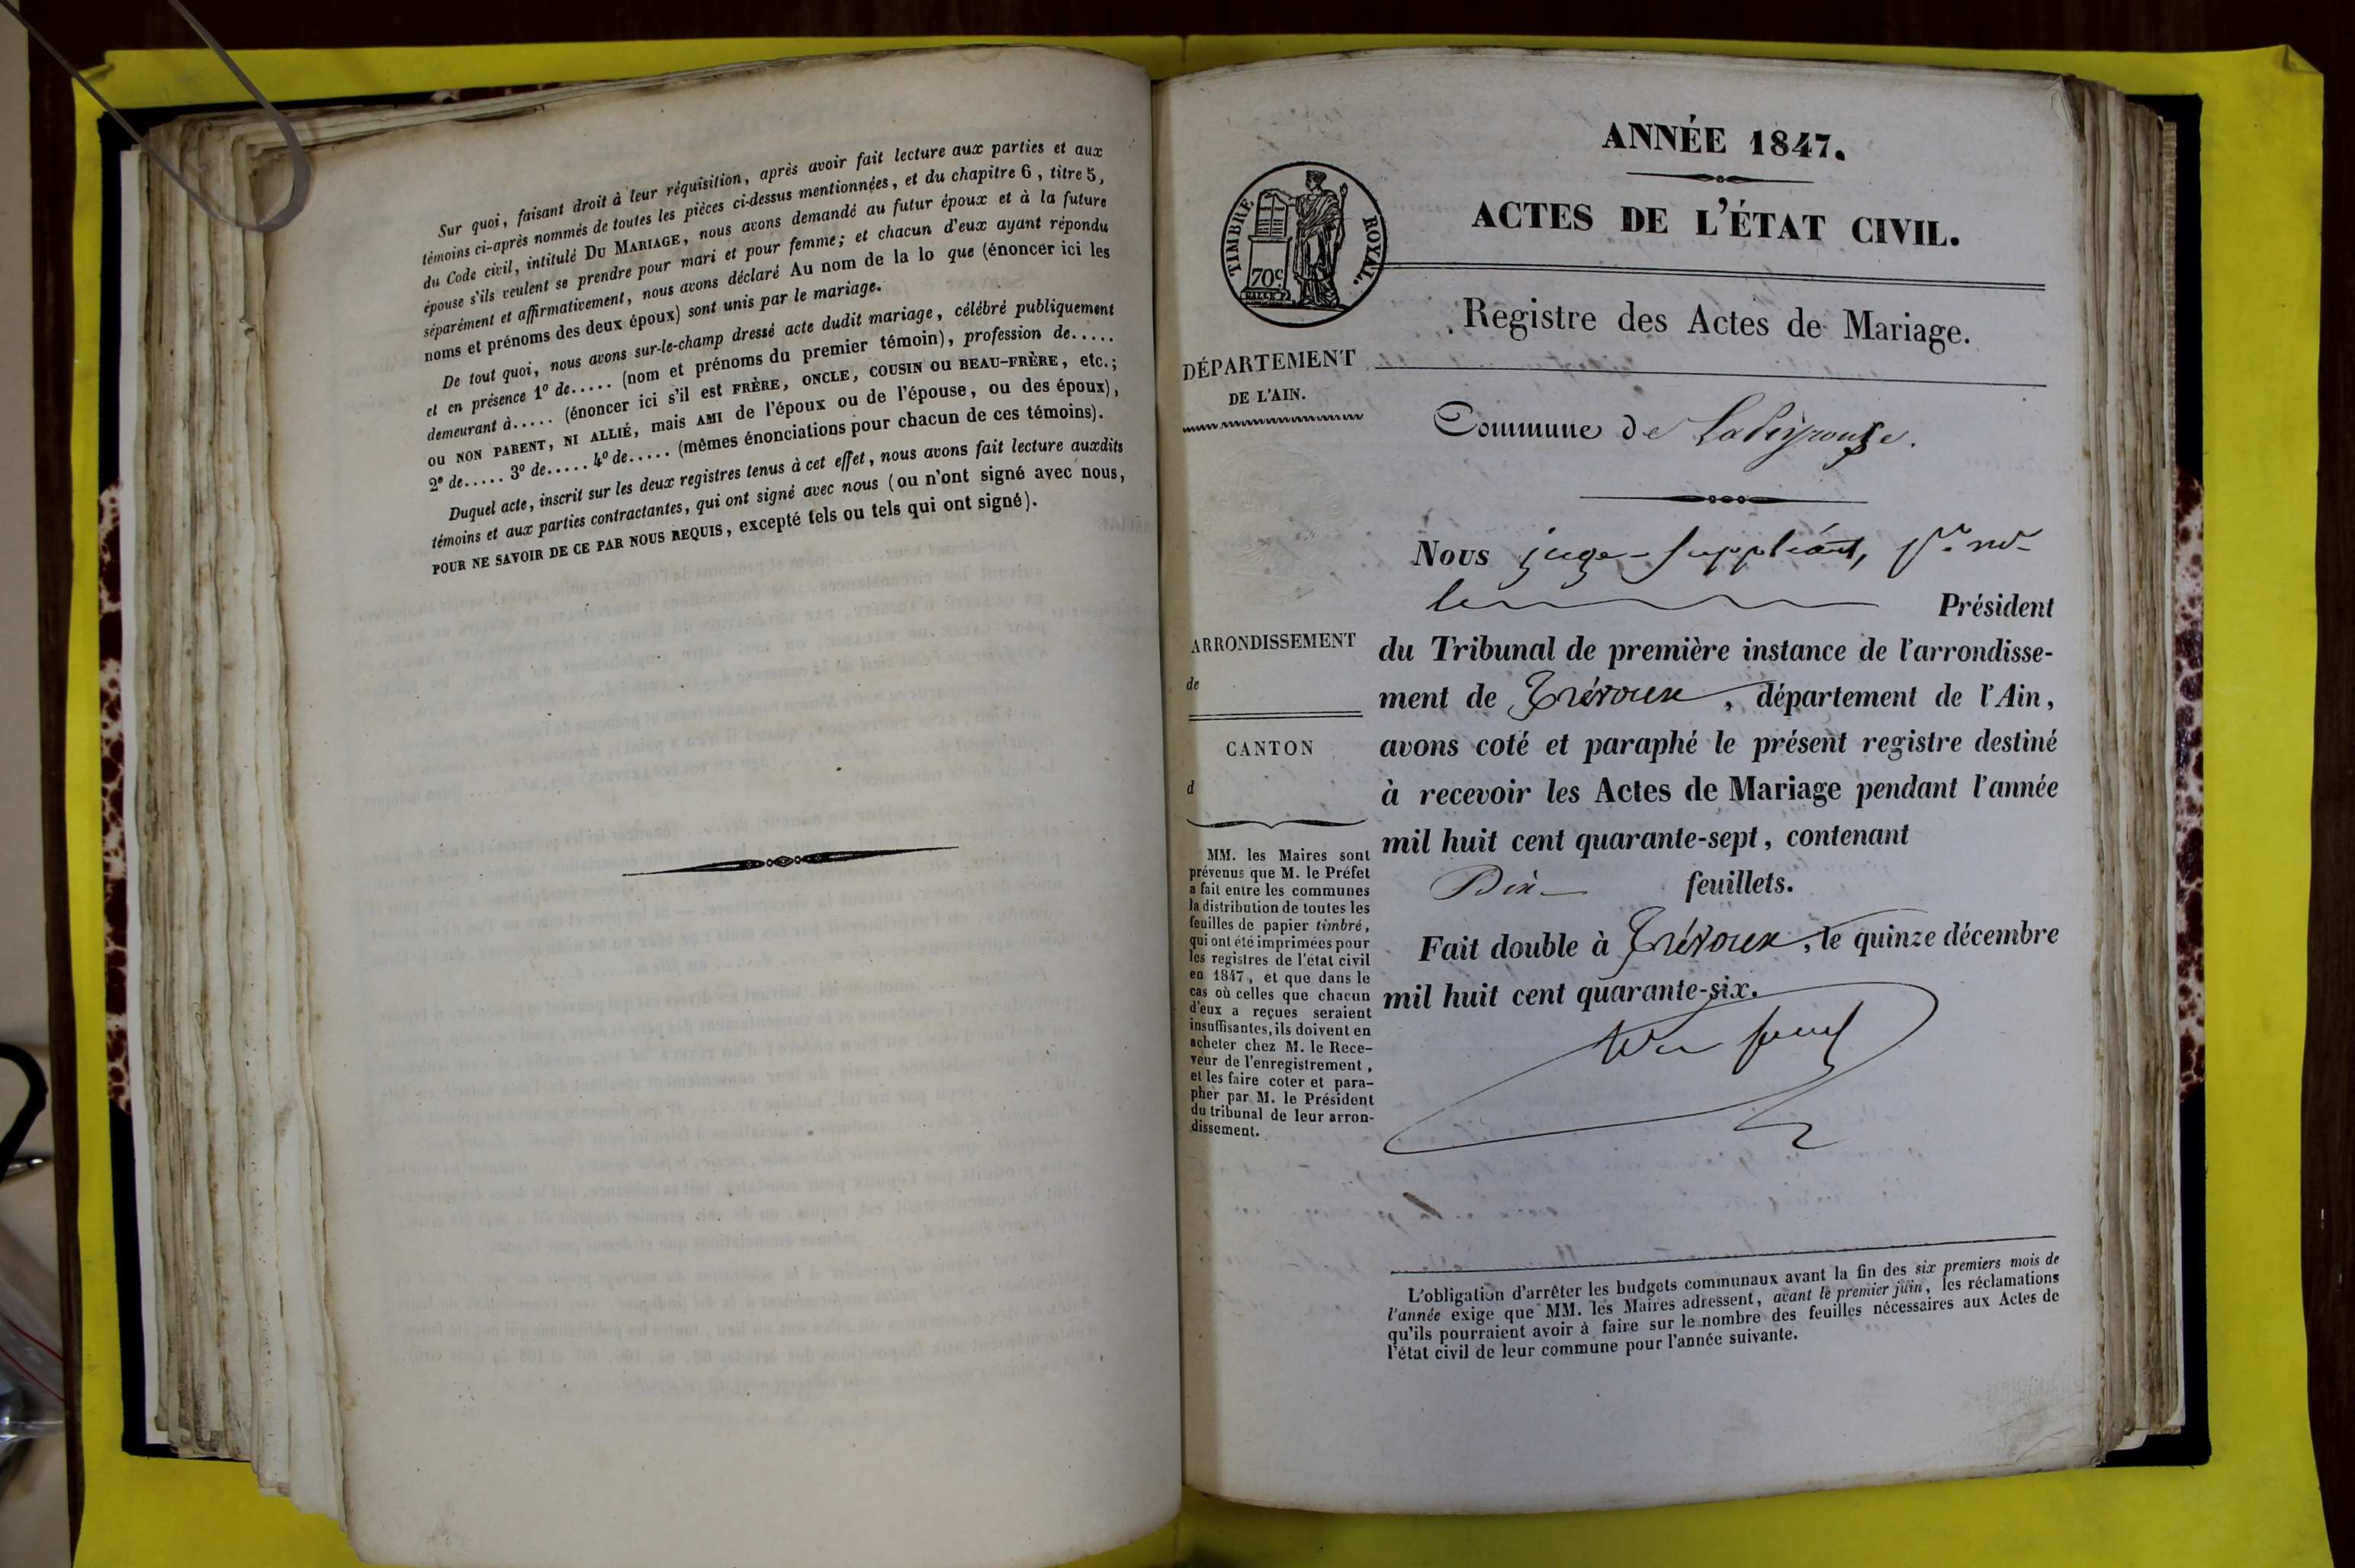 Sur quoi, faisant droit à leur réquisition, après avoir fait lecture aux parties et aux
témoins ci-après nommés de toutes les pièces ci-dessus mentionnées, et du chapitre 6, titre 5,
du Code civil, intitulé DU MARIAGE, nous avons demandé au futur époux et à la future
épouse s'ils veulent se prendre pour mari et pour femme; et chacun d'eux ayant répondu
séparément et affirmativement, nous avons déclaré Au nom de la lo que (énoncer ici les
noms et prénoms des deux époux) sont unis par le mariage.
De tout quoi, nous avons sur-le-champ dressé acte dudit mariage, célébré publiquement
et en présence 1º de..... (nom et prénoms du premier témoin), profession de.....
demeurant à..... (énoncer ici s'il est FRÈRE, ONCLE, COUSIN OU BEAU-FRÈRE, etc.;
OU NON PARENT, NI ALLIÉ, mais AMI de l'époux ou de l'épouse, ou des époux),
2º de..... 3º de..... 4º de..... (mêmes énonciations pour chacun de ces témoins).
Duquel acte, inscrit sur les deux registres tenus à cet effet, nous avons fait lecture auxdits
témoins et aux parties contractantes, qui ont signé avec nous (ou n'ont signé avec nous,
POUR NE SAVOIR DE CE PAR NOUS REQUIS, excepté tels ou tels qui ont signé).
ANNÉE 1847.
ACTES DE L'ÉTAT CIVIL.
TIMBRE ROYAL.
70c
Registre des Actes de Mariage.
DÉPARTEMENT
DE L'AIN.
Commune de LaPeyrouse.
ARRONDISSEMENT
de
CANTON
d
MM. les Maires sont
prévenus que M. le Préfet
a fait entre les communes
la distribution de toutes les
feuilles de papier timbré,
qui ont été imprimées pour
les registres de l'état civil
en 1847, et que dans le
cas où celles que chacun
d'eux a reçues seraient
insuffisantes, ils doivent en
acheter chez M. le Rece-
veur de l'enregistrement,
et les faire coter et para-
pher par M. le Président
du tribunal de leur arron-
dissement.
Nous juge-suppléant,
le Président
du Tribunal de première instance de l'arrondisse-
ment de Trévoux, département de l'Ain,
avons coté et paraphé le présent registre destiné
à recevoir les Actes de Mariage pendant l'année
mil huit cent quarante-sept, contenant
Dix feuillets.
Fait double à Trévoux, le quinze décembre
mil huit cent quarante-six.
L'obligation d'arrêter les budgets communaux avant la fin des six premiers mois de
l'année exige que MM. les Maires adressent, avant le premier juin, les réclamations
qu'ils pourraient avoir à faire sur le nombre des feuilles nécessaires aux Actes de
l'état civil de leur commune pour l'année suivante.